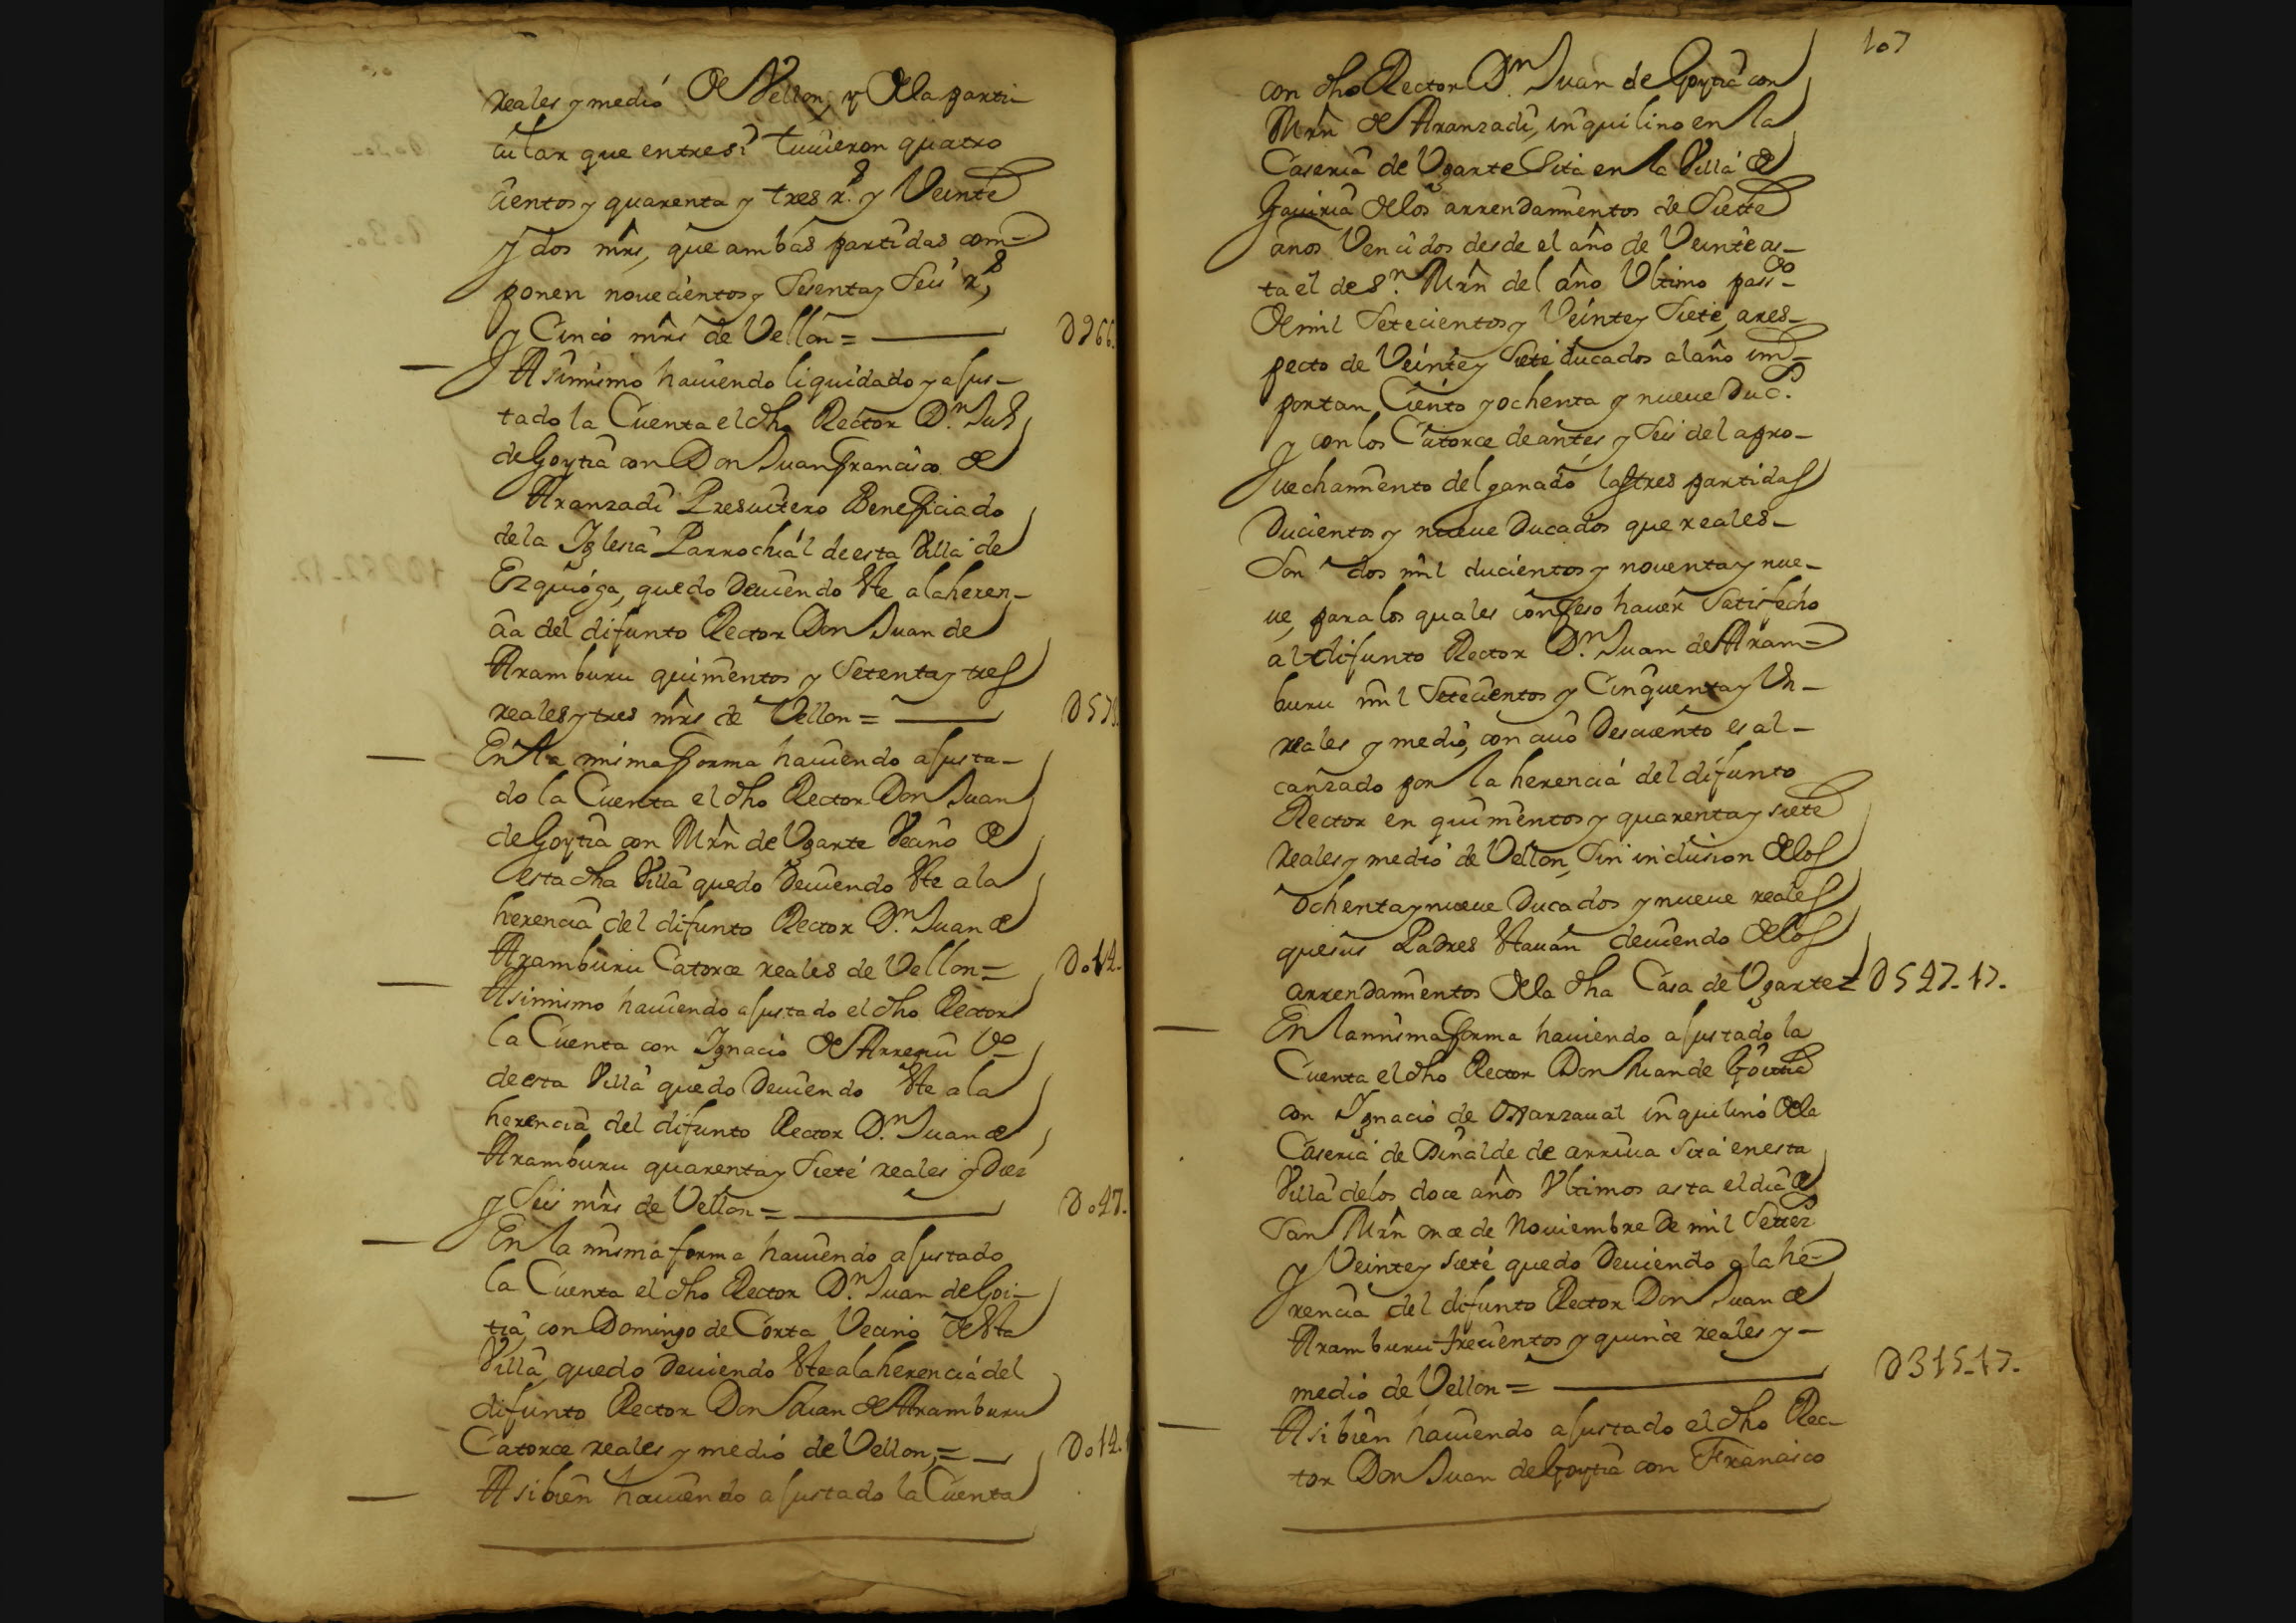 reales y medio de Vellon, y de la parti
cular que entre si tuuieron quatro
cientos y quarenta y tres r.s y Veinte
y dos mrs, que ambas partidas com=
ponen nouecientos y Sesenta y Seis r.s
y Cinco mrs de Vellon = D966.
Asimismo hauiendo liquidado y ajus-
tado la Cuenta el dho Rector D.n Juº
de Goytia con Don Juan Francisco de
Aranzadi Presuitero Beneficiado
de la Iglesia Parrochial de esta Villa de
Ezquioga, quedo deuiendo Ste a la heren-
cia del difunto Rector Don Juan de
Aramburu quinientos y Setenta y tres
reales y tres mrs de Vellon = D573
En la misma forma hauiendo ajusta-
do la Cuenta el dho Rector Don Juan
de Goytia con Mrn de Vgarte Vecino de
esta dha Villa quedo deuiendo Ste a la
herencia del difunto Rector D.n Juan de
Aramburu Catorce reales de Vellon = Do14.
Asimismo hauiendo ajustado el dho Rector
la Cuenta con Ignacio de Arregui Vo
de esta Villa quedo deuiendo Ste a la
herencia del difunto Rector D.n Juan de
Aramburu quarenta y Siete reales y Diez
y Seis mrs de Vellon = Do47.
En la misma forma hauiendo ajustado
la Cuenta el dho Rector D.n Juan de Goi-
tia, con Domingo de Corta Vecino de Sta
Villa, quedo deuiendo Ste a la herencia del
difunto Rector Don Juan de Aramburu
Catorce reales y medio de Vellon, = Do14.
Asibien hauiendo ajustado la Cuenta
107
con dho Rector D.n Juan de Goytia con
Mrn de Aranzadi, inquilino en la
Caseria de Vgarte Sita en la Villa de
Gauiria de los arrendamientos de Siette
años Vencidos desde el año de Veinte as-
ta el de S.n Mrn del año Vltimo passdo
de mil Setecientos y Veinte y Siete, a res-
pecto de Veinte y Siete ducados al año im-
portan Ciento y ochenta y nueue Duc.s
y con los Catorce de antes, y Seis del apro-
uechamiento del ganado las tres partidas
Ducientos y nueue Ducados que reales-
Son dos mil ducientos y nouenta y nue-
ue, para los quales confeso hauer Satisfecho
al difunto Rector D.n Juan de Aram=
buru mil Setecientos y Cinquenta y Vn-
reales y medio, con cuio Descuento es al-
canzado por la herencia del difunto
Rector en quinientos y quarenta y siete
reales y medio de Vellon, Sin inclusion de los
ochenta y nueue Ducados y nueue reales
que sus Padres Stauan deuiendo de los
arrendamientos de la dha Casa de Vgarte = D547-17.
En la misma forma hauiendo ajustado la
Cuenta el dho Rector Don Juan de Goitia
con Ignacio de Oyarzaual inquilino de la
Caseria de Dinalde de arriua Sita en esta
Villa de los doce años Vltimos asta el dia de
San Mrn once de Nouiembre de mil Setez.s
y Veinte y Siete quedo deuiendo a la he=
rencia del difunto Rector Don Juan de
Aramburu trecientos y quince reales y-
medio de Vellon = D315-17.
Asibien hauiendo ajustado el dho Rec-
tor Don Juan de Goytia con Francisco